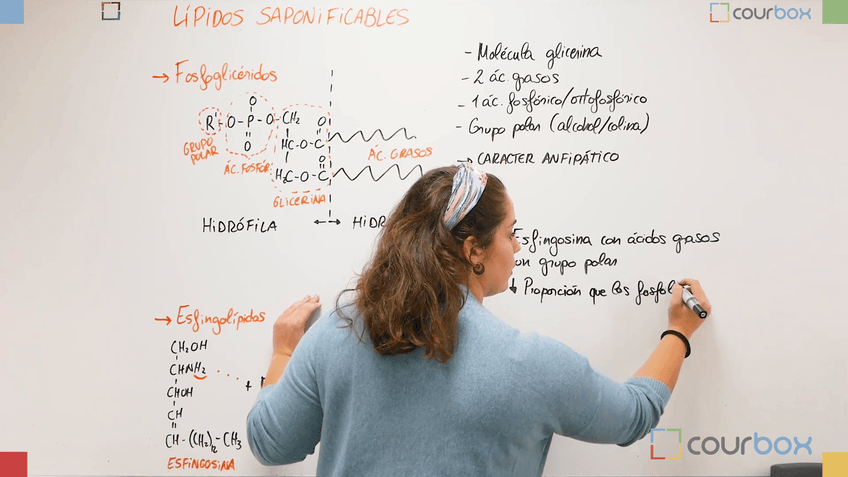 LÍPIDOS SAPONIFICABLES
courbox
→ Fosfoglicéridos
R'-O-P-O-CH₂
O
O
HC-O-C
O
H₂C-O-C
O
GRUPO POLAR
ÁC. FOSFÓR
GLICERINA
ÁC. GRASOS
HIDRÓFILA ←→ HIDR
- Molécula glicerina
- 2 ác. grasos
- 1 ác. fosfórico/ortofosfórico
- Grupo polar (alcohol/colina)
→ CARACTER ANFIPÁTICO
Esfingosina con ácidos grasos
un grupo polar
↓ Proporción que los fosfol
→ Esfingolípidos
CH₂OH
CHNH₂
+
CHOH
CH
CH-(CH₂)₁₂-CH₃
ESFINGOSINA
courbox